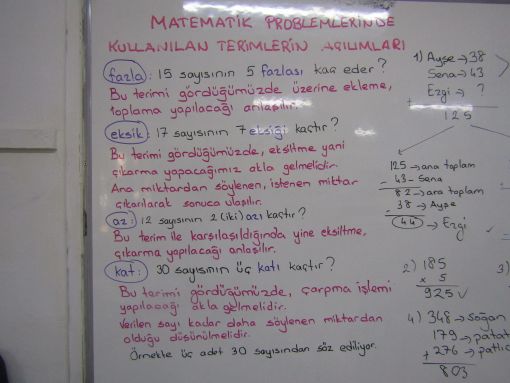 MATEMATİK PROBLEMLERİNDE
KULLANILAN TERİMLERİN AÇILIMLARI
fazla: 15 sayısının 5 fazlası kaç eder?
Bu terimi gördüğümüzde üzerine ekleme,
toplama yapılacağı anlaşılır.
eksik: 17 sayısının 7 eksiği kaçtır?
Bu terimi gördüğümüzde, eksiltme yani
çıkarma yapacağımız akla gelmelidir.
Ana miktardan söylenen, istenen miktar
çıkarılarak sonuca ulaşılır.
az: 12 sayısının 2 (iki) azı kaçtır?
Bu terim ile karşılaşıldığında yine eksiltme,
çıkarma yapılacağı anlaşılır.
kat: 30 sayısının üç katı kaçtır?
Bu terimi gördüğümüzde, çarpma işlemi
yapılacağı akla gelmelidir.
Verilen sayı kadar daha söylenen miktardan
olduğu düşünülmelidir.
Örnekte üç adet 30 sayısından söz ediliyor.
1) Ayşe → 38
Sena → 43
Ezgi → ?
+
125
125 → ana toplam
- 43 - Sena
82 → ara toplam
- 38 → Ayşe
44 → Ezgi
2) 185
x 5
925 ✓
3)
4) 348 → soğan
179 → patat
+ 276 → patlıc
803